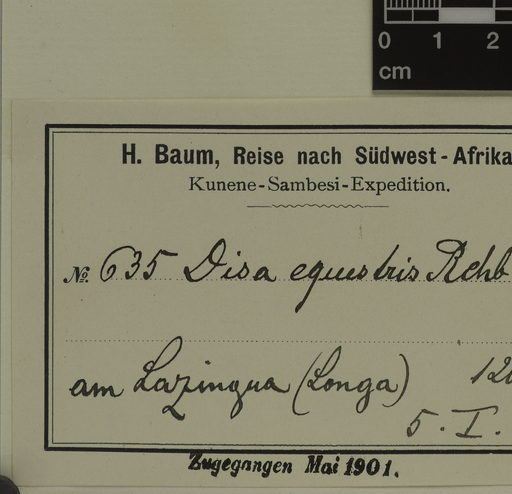 0 1 2
cm
H. Baum, Reise nach Südwest-Afrika
Kunene-Sambesi-Expedition.
№. 635 Disa equestris Rchb
am Lazingua (Longa) 120
5. I.
Zugegangen Mai 1901.